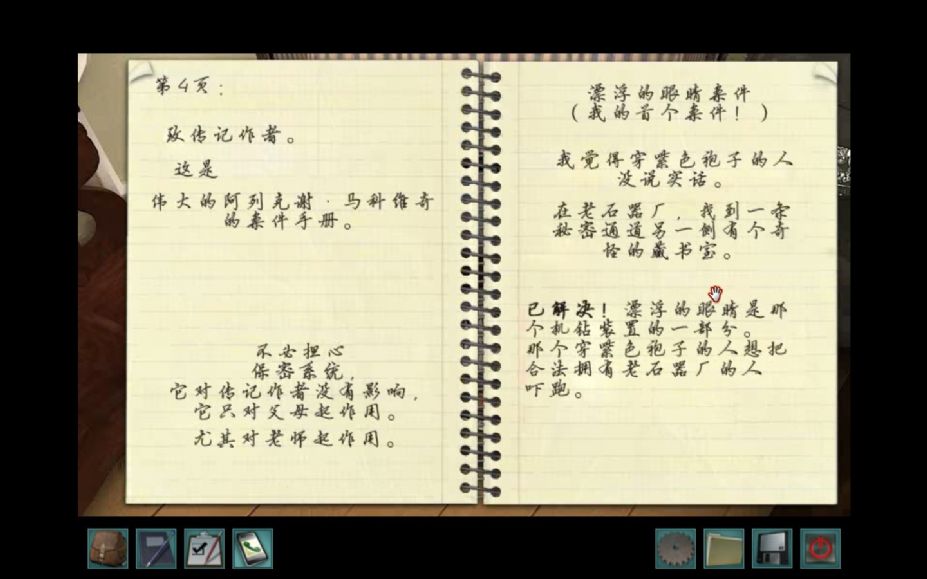 第4页：
致传记作者。
这是
伟大的阿列克谢·马科维奇
的案件手册。
不必担心
保密系统，
它对传记作者没有影响，
它只对父母起作用。
尤其对老师起作用。
漂浮的眼睛案件
（我的首个案件！）
我觉得穿紫色袍子的人
没说实话。
在老石器厂，我到一条
秘密通道另一侧有个奇
怪的藏书室。
已解决！漂浮的眼睛是那
个机钻装置的一部分。
那个穿紫色袍子的人想把
合法拥有老石器厂的人
吓跑。